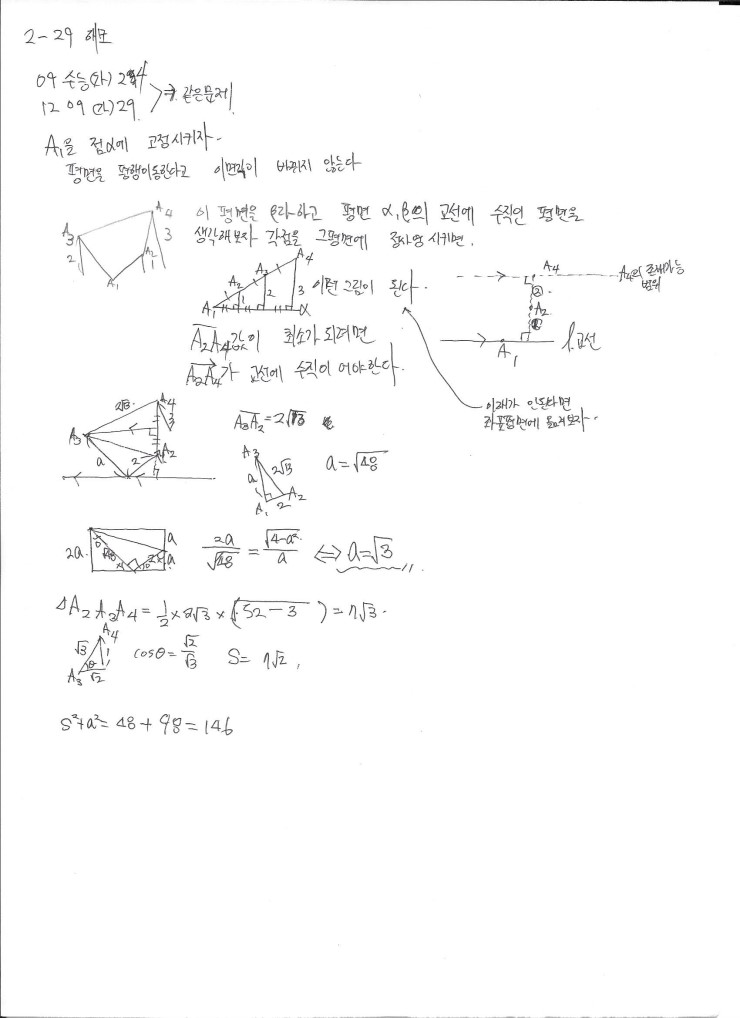 2-29 해포
09 수능(가) 24
12 09 (가) 29 ⇒ 같은문제
A₁을 점α에 고정시키자.
평면을 평행이동한다고 이면각이 바뀌지 않는다
A₃ A₄ 2 3 A₂ 1 A₁
이 평면을 β라하고 평면 α,β의 교선에 수직인 평면을
생각해보자 각점을 그평면에 정사영 시키면,
A₁ A₂ A₃ A₄ 1 2 3 α 이런 그림이 된다.
A₄ A₄의 존재가능 범위
② A₂ ①
A₁ l 교선
A₂A₄값이 최소가 되려면
A₂A₄가 교선에 수직이 어야한다.
이해가 안된다면
좌표평면에 옮겨보자..
2√13 A₄ 3 A₃ a 2 A₂
A₃A₂=2√13
A₃ a 2√13 A₁ 2 A₂
a=√48
2a a a
2a/√48 = √4-a²/a ⇔ a=√3
△A₂A₃A₄ = 1/2 × 2√3 × (√52-3) = 7√3.
√3 A₄ 1 A₃ θ √2
cosθ = √2/√3 S= 7√2,
S²+a²= 48 + 98 = 146